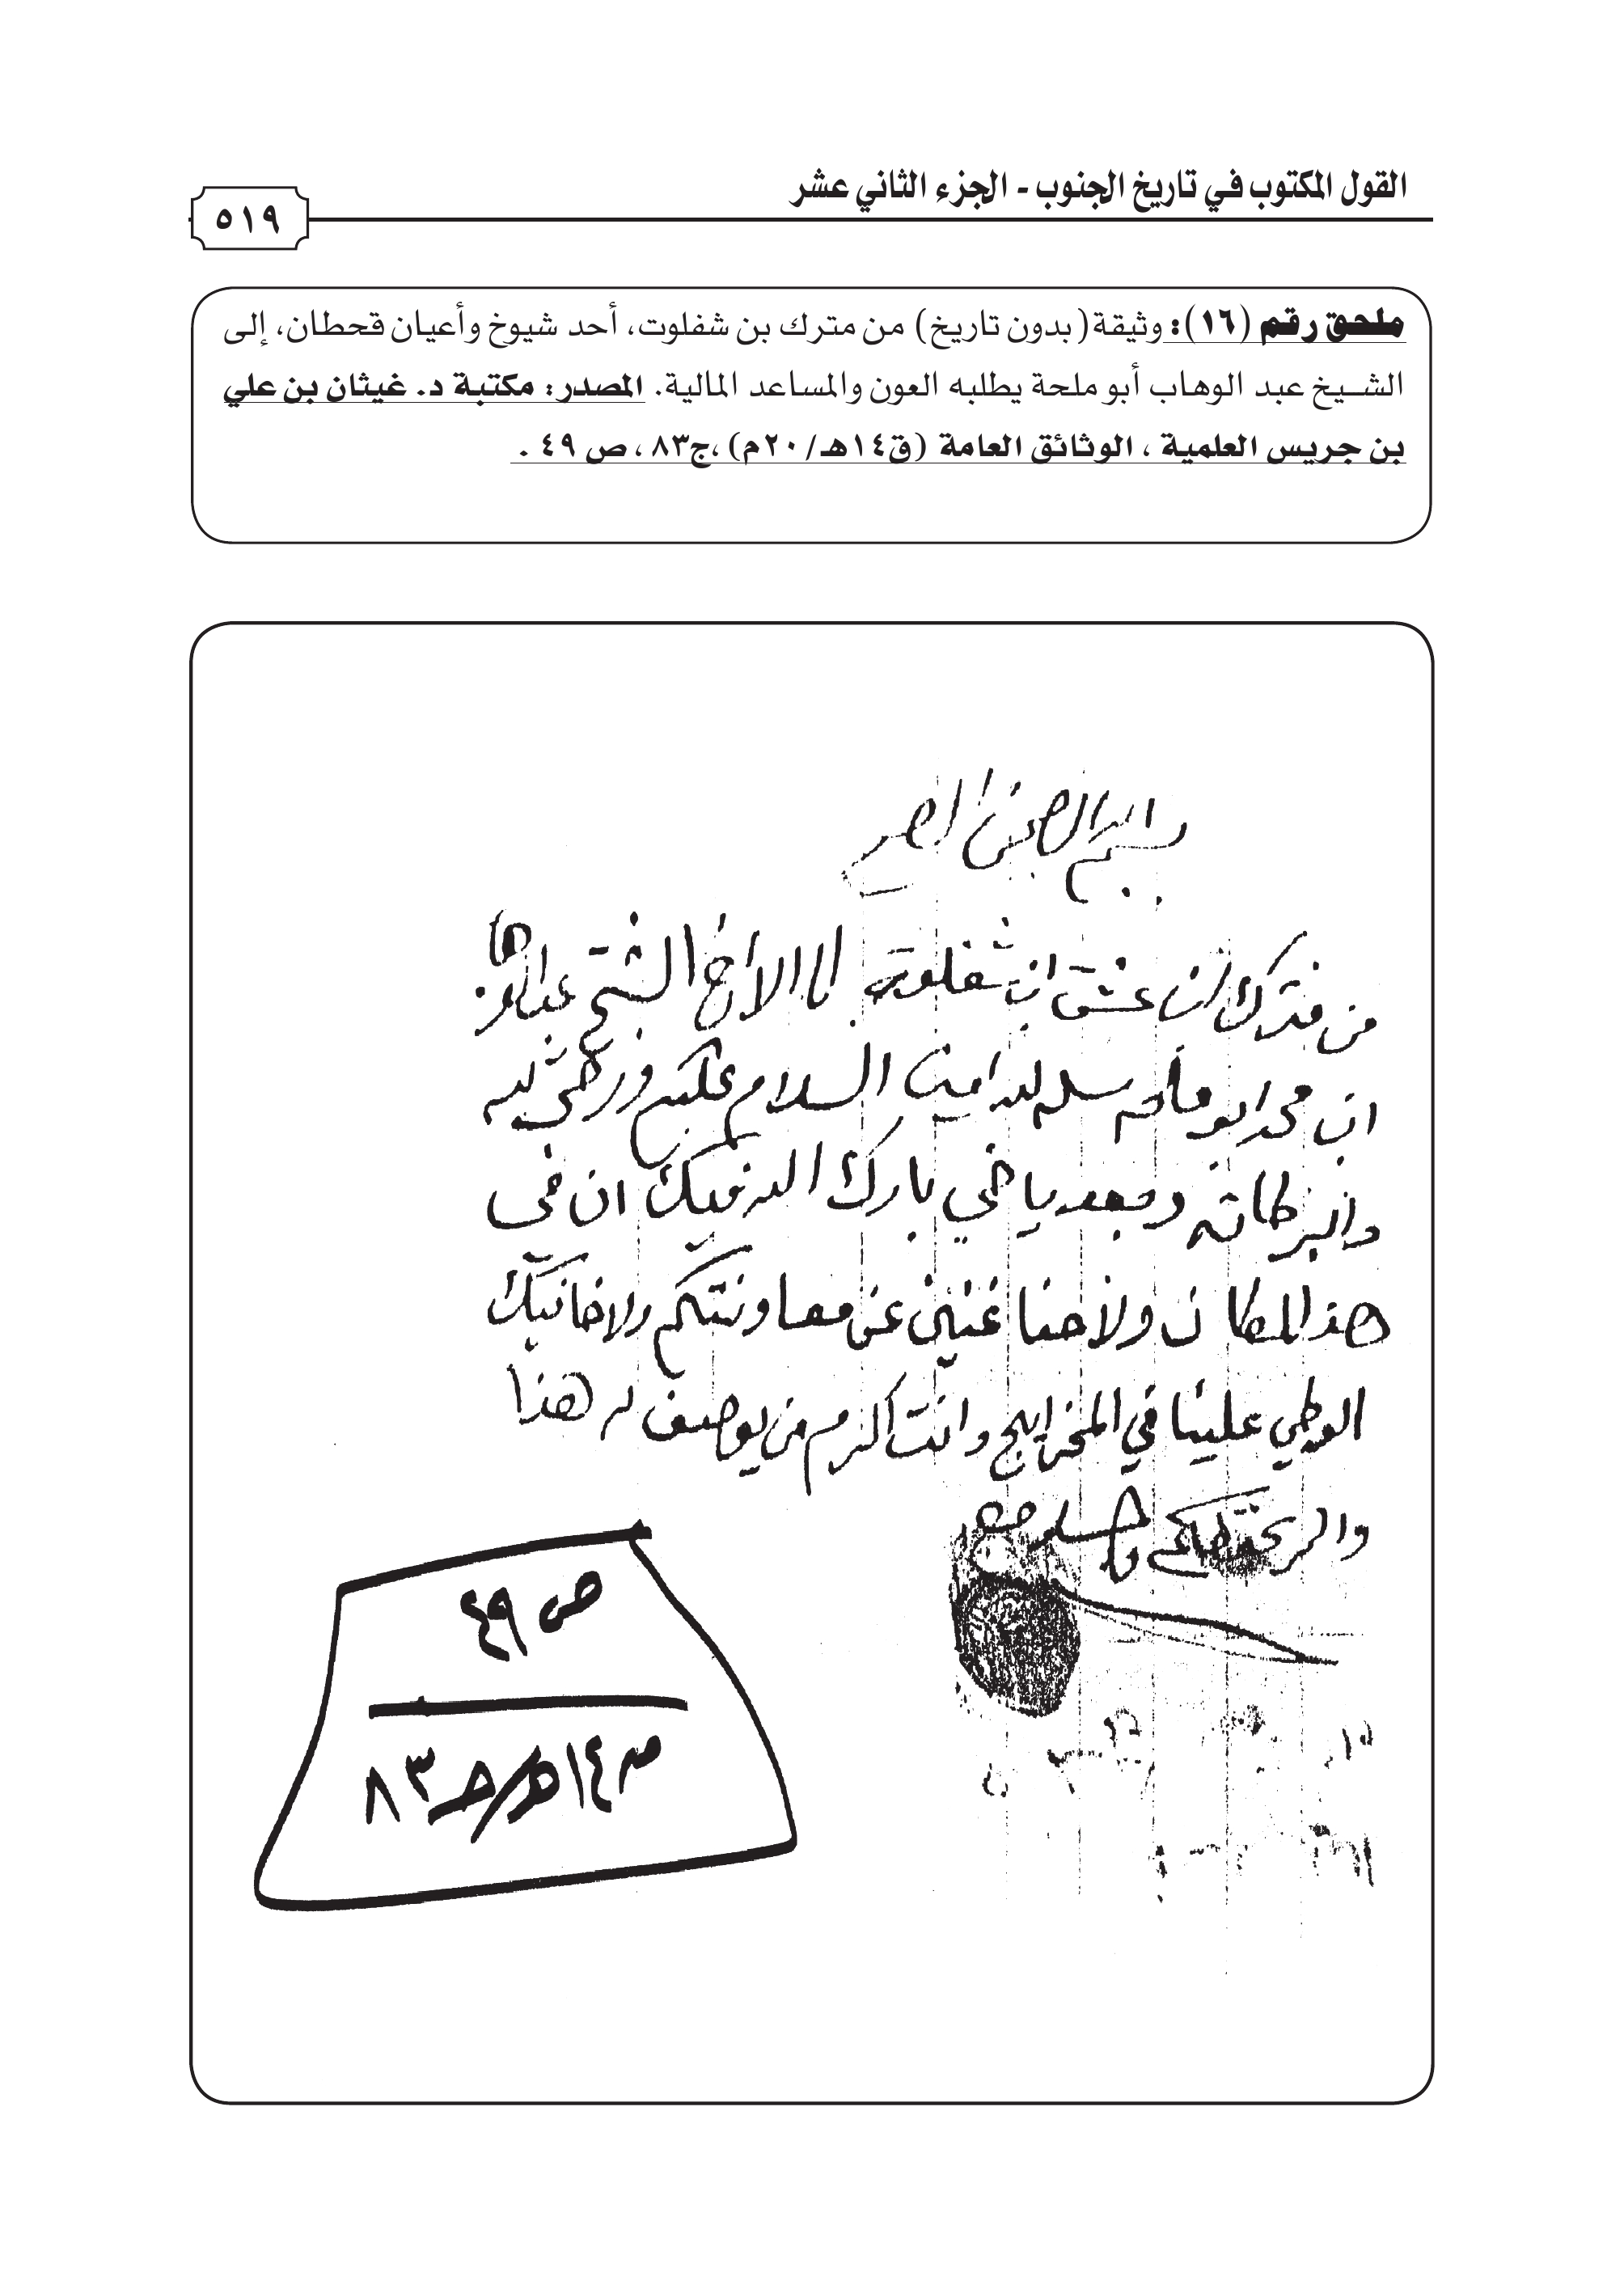 القول المكتوب في تاريخ الجنوب - الجزء الثاني عشر
٥١٩
ملحق رقم (١٦): وثيقة (بدون تاريخ) من مترك بن شفلوت، أحد شيوخ وأعيان قحطان، إلى
الشيخ عبد الوهاب أبو ملحة يطلبه العون والمساعد المالية. المصدر: مكتبة د. غيثان بن علي
بن جريس العلمية ، الوثائق العامة (ق١٤هـ/٢٠م)،ج٨٣ ، ص ٤٩ .
بسم الله الرحمن الرحيم
من مترك ابن شفلوت الا الاخ الشيخ عبدالوهاب
ابن محمد ابو ملحه سلمه الله امين السلام عليكم ورحمت الله
وابركاته وبعد يا خي بارك الله فيك ان في
هذالمكان ولاحنا غنين عن معاونتكم ولاخانيك
الوطي علينا في المخراييج وانت اكرم من يوصف له هذا
والله يحفظكم والسلام
ص ٤٩
ق ١٤هـ/جـ ٨٣